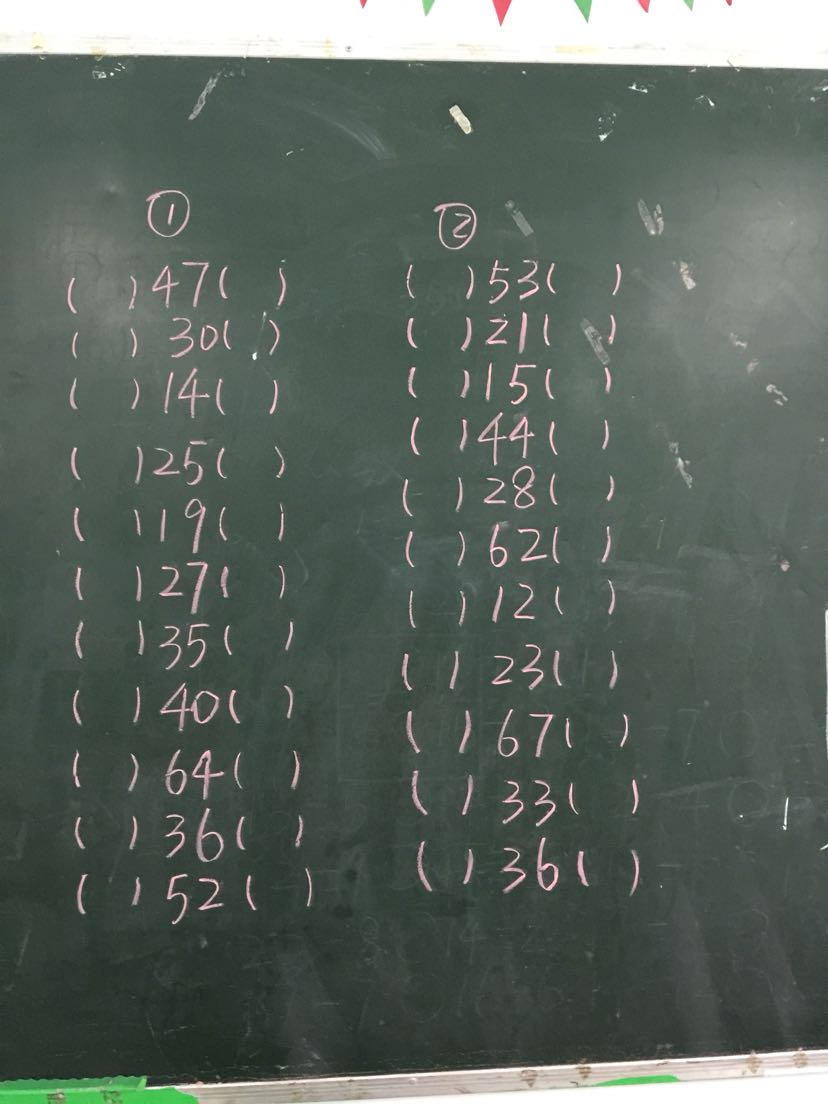 ①
(  )47(  )
(  )30(  )
(  )14(  )
(  )25(  )
(  )19(  )
(  )27(  )
(  )35(  )
(  )40(  )
(  )64(  )
(  )36(  )
(  )52(  )
②
(  )53(  )
(  )21(  )
(  )15(  )
(  )44(  )
(  )28(  )
(  )62(  )
(  )12(  )
(  )23(  )
(  )67(  )
(  )33(  )
(  )36(  )